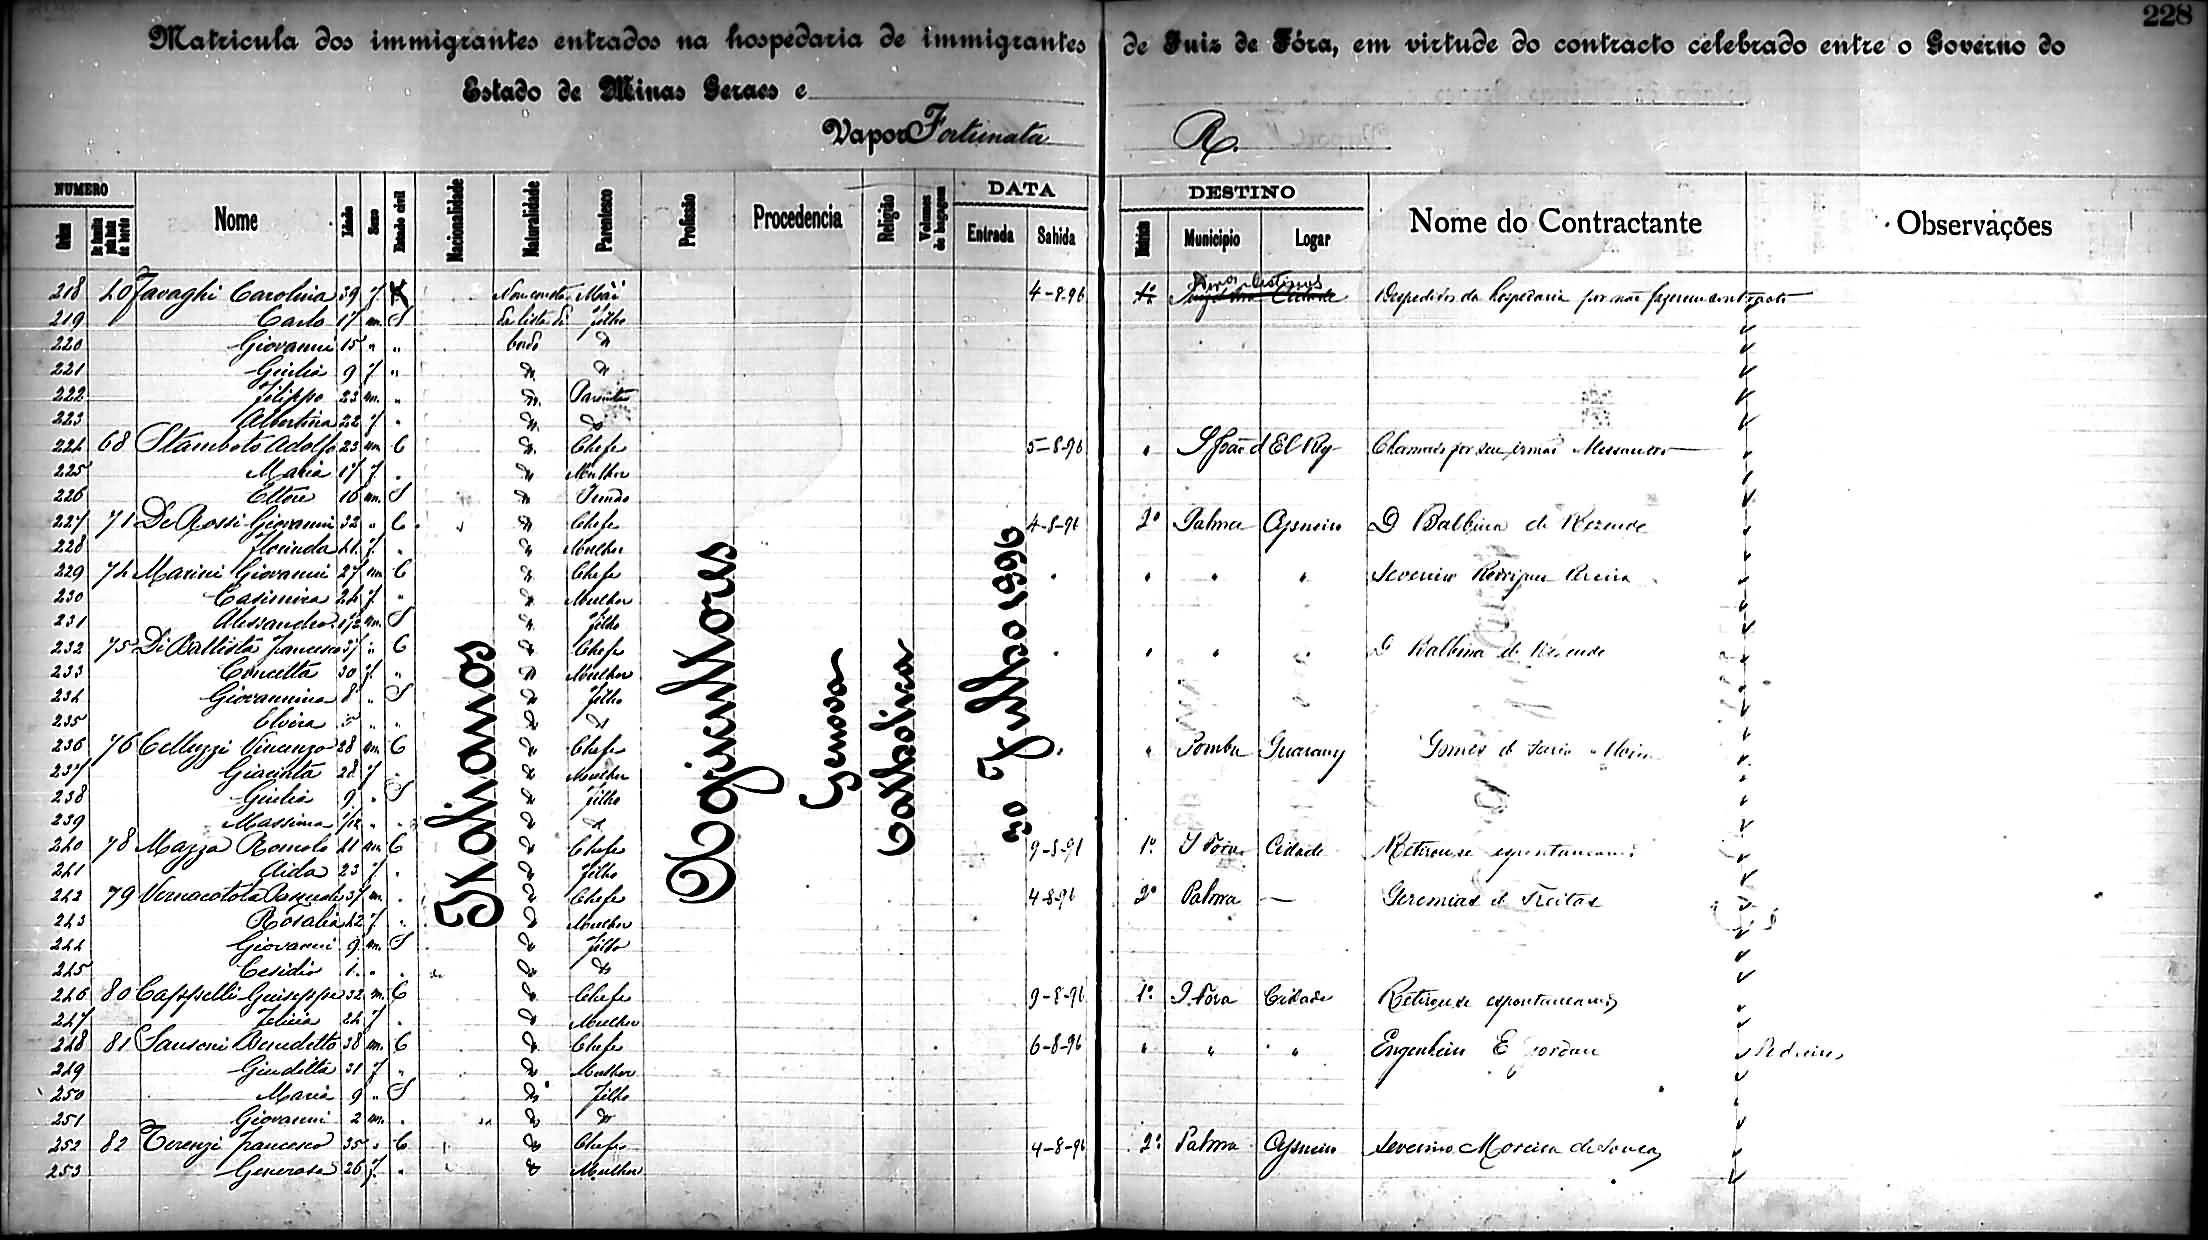 228
Matricula dos immigrantes entrados na hospedaria de immigrantes de Juiz de Fóra, em virtude do contracto celebrado entre o Governo do
Estado de Minas Geraes e
Vapor Fortunata R.
NUMERO Nome Idade Sexo Estado civil Nacionalidade Naturalidade Parentesco Profissão Procedencia Religião Volumes de bagagem DATA DESTINO Nome do Contractante Observações
Ordem Entrada Sahida Districto Municipio Logar
Italianos Agricultores Genova Catholica 30 Julho 1896
218 Carolina 39 f. Não consta Mãi 4-8-96 1º Cidade Despedidos da hospedaria por não fazerem contracto
Diros destinos
219 Carlo 17 m. S da lista de filho
220 Giovanni 15 " " bordo "
221 Giulia 9 f. " " "
222 Filippo 23 m. " " Parentes
223 Albertina 22 f. " " "
224 68 Stamboto Adolfo 23 m. C " Chefe 5-8-96 " S João d El Rey Chamado por seu irmão
225 Maria 17 f. " " Mulher
226 Ettore 16 m. S " Irmão
227 71 De Rossi Giovanni 32 " C " Chefe 4-8-96 2º Palma D Balbina de Rezende
228 Florinda f. " " Mulher
229 74 Marini Giovanni 27 m. C " Chefe " " " " Severino Rodrigues Pereira
230 Casimira 24 f. " " Mulher
231 Alessandro 1/2 m. S " filho
232 75 Di Battista Francesco 37 " C " Chefe " " " " D Balbina de Rezende
233 Concetta 30 f. " " Mulher
234 Giovannina 8 " S " filho
235 Elvira " " " "
236 76 Celluzzi Vincenzo 28 m. C " Chefe " " Pomba Guarany Gomes de
237 Giacinta 28 f. " " Mulher
238 Giulia 9 " S " filho
239 Massima 1/12 " " " "
240 78 Mazza Romolo 41 m. C " Chefe 9-8-96 1º J Fóra Cidade Retirou-se
241 Aida 23 f. " " filho
242 79 37 m. " " Chefe 4-8-96 2º Palma — Geremias de Freitas
243 Rosalia 42 f. " " Mulher
244 Giovanni 9 m. S " filho
245 Cesidio 1 " " " "
246 80 Cappelli Guiseppe 32 m. C " Chefe 9-8-96 1º J. Fóra Cidade Retirou-se
247 Felicia 24 f. " " Mulher
248 81 Sansoni Benedetto 38 m. C " Chefe 6-8-96 " " " Engenheiro E Jordan Pedreiro
249 Giuditta 31 f. " " Mulher
250 Maria 9 " S " filho
251 Giovanni 2 m. " " "
252 82 Terenzi Francesco 35 " C " Chefe 4-8-96 2º Palma Severino Moreira de Souza
253 Generosa 26 f. " " Mulher